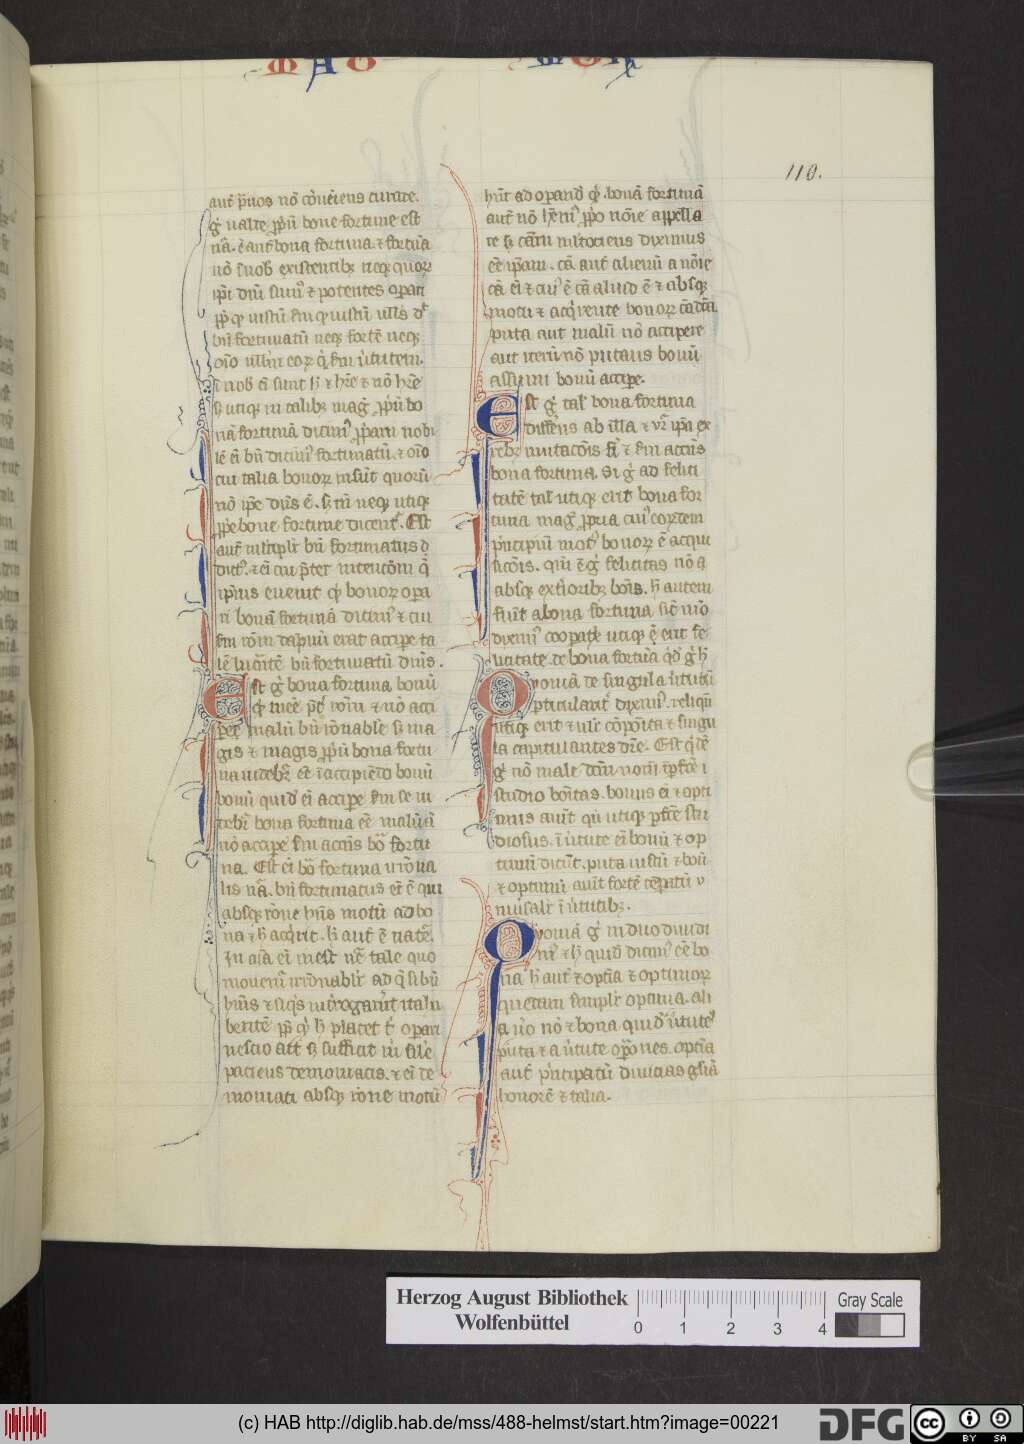 MAG MOR
110.
aut p̄uos nō cōueniens curare.
g° ualde p̱p̄ū bone fortune est
nā. ē aut bona fortuna. ⁊ fortūa
nō s̄ nob̄ existentibꝫ neqꝫ quoꝝ
ip̄i dn̄i sumꝰ ⁊ potentes opari
bn̄ fortunatū neqꝫ fortē neqꝫ
s̄ nob̄ ei sunt h̄ ⁊ hr̄e ⁊ nō hr̄e
s̄ utiqꝫ in talibꝫ mag̓ p̱p̄ū bo
nā fortunā dicimꝰ p̱p̄am nobi
lē ei bn̄ dicimꝰ fortunatū. ⁊ oīo
cui talia bonoꝝ insūt quorū
nō ip̄e dn̄s ē. s̄ tn̄ neqꝫ utiqꝫ
p̱p̄e bone fortune dicentʳ. Est
aut̄ mltiplr̄ bn̄ fortunatus d̄
dictꝰ. ⁊ ei cui p̄ter intentōm q̄
ip̄ius euenit qͥ bonoꝝ opa
ri bonā fortunā dicimꝰ ⁊ cui
sm̄ rōm dāpnū erat accipe ta
lē lucrātē bn̄ fortunatū dimꝰ.
Est g° bona fortuna bonū
pere malū bn̄ rōnable s̄ ma
gis ⁊ magis p̱p̄ū bona fortu
na uidebiʳ. est ī accipiēdo bonū
bonū quid ei accipe sm̄ se ui
debiʳ bona fortuna eē malū ū
nō accipe sm̄ accn̄s bō fortu
na. Est ei bō fortuna irrōna
lis nā. bn̄ fortunatus ei ē qui
absqꝫ rōne hn̄s motū ad bo
na ⁊ h̄ acq̄rit. h̄ aut ē natē.
In aīa ei inest nē tale quo
mouemʳ irrōnablr̄ ad q̄ sibū
hn̄s ⁊ siq̄s īterrogauit ītalr̄
bentē p̱p̱ qͥ h̄ placet tͥ opari
nescio ait s̄ sufficit m̄ sile
patiens demoniacis. ⁊ ei de
moniati absqꝫ rōne motū
hn̄t ad opandū qͥ. bonā fortunā
aut̄ nō hēmꝰ p̱p̄o nōie appella
re s̄ cām mltociens diximus
eē ip̄am. cā aut̄ alienū a nōie
cā ei ⁊ cuiꝰ ē cā aliud ē ⁊ absqꝫ
motu ⁊ acq̄rente bonoꝝ cā dcā.
puta aut malū nō accipere
aut iterū nō putans bonū
assumi bonū accipe.
Est g° tal̓ bona fortuna
differēs ab illa ⁊ uʳ ip̄a ex
rebꝫ mutacōis fi ⁊ sm̄ accn̄s
bona fortuna. Si g° ad felici
tatē tal̓ utiqꝫ erit bona for
tuna mag̓ p̱pria cuiꝰ eoꝝdem
p̄ncipiū motꝰ bonoꝝ ē acqui
sicōis. qm̄ ē g° felicitas nō ē
absqꝫ extioribꝫ bōis. h̄ autem
fiūt a bona fortuna sic̄ mō
diximꝰ coopat̄x utiqꝫ ē erit fe
licitate. de bona fortūa qd̄ g° h̄
Qoniā de singula ūtutū
pticulariʳ diximꝰ. reliqū
utiqꝫ erit ⁊ ul̓e cōpōita ⁊ singu
la capitulantes dr̄e. Est q̄dē
g° nō male dcm̄ nom̄ ī pfcē i
studio bōitas. bonus ei ⁊ opti
mus aut̄ qn̄ utiqꝫ pfcē stu
diosus. ī ūtute ei bonū ⁊ op
timū dicūt. puta iustū ⁊ bonū
⁊ optimū aut fortē tēpatū ⁊
niūsalr̄ ī ūtutibꝫ.
Qoniā g° in duo diuidi
mꝰ ⁊ h̄ quid dicimꝰ eē bo
na h̄ aut ⁊ optīa ⁊ optimoꝝ
quedam simplr̄ optima. ali
a uō nō ⁊ bona quid ūtuteꝰ
puta ⁊ a ūtute opōnes. optīa
aut̄ p̄ncipatū diuitias gl̄iā
honorē ⁊ talia.
Herzog August Bibliothek
Wolfenbüttel
0 1 2 3 4
Gray Scale
(c) HAB http://diglib.hab.de/mss/488-helmst/start.htm?image=00221
DFG
cc BY SA